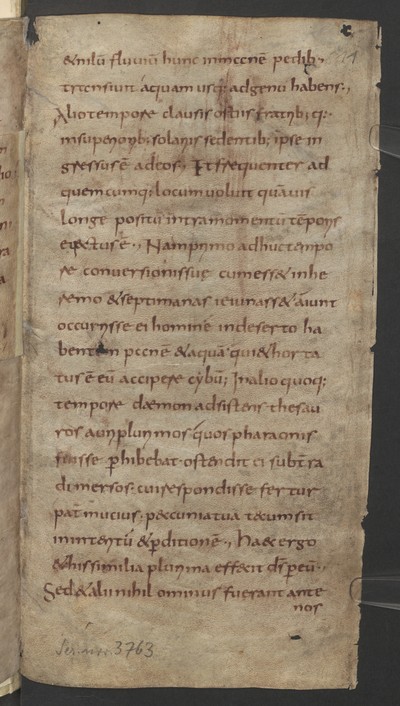 & nilū fluviū hunc inmenē pedib;
transiuit aquam usq; ad genu habens;
Alio tempore clausis ostiis fratrib; q;
in superiorib; solariis sedentib; ipse in
gressus ē ad eos; Et frequenter ad
quemcumq; locum uoluit quāuis
longe positū intra momentū tēporis
ē; Nam primo adhuc tempo
re conversionis suę cum ess& in he
remo & septimanas ieiunass& aiunt
occurrisse ei hominē in deserto ha
bentem panē & aquā qui & horta
tus ē eū accipere cybū; In alio quoq;
tempore dæmon adsistens thesau
ros aurj plurimos quos pharaonis
fuisse phibebat ostendit ei subtrra
dimersos cui respondisse fertur
pat mucius pæccunia tua tecum sit
in interitū & pditionē; Haec ergo
& his similia plurima effecit ds̄ p eū;
Sed & alii nihilominus fuerunt ante
nos
Ser. nov. 3763